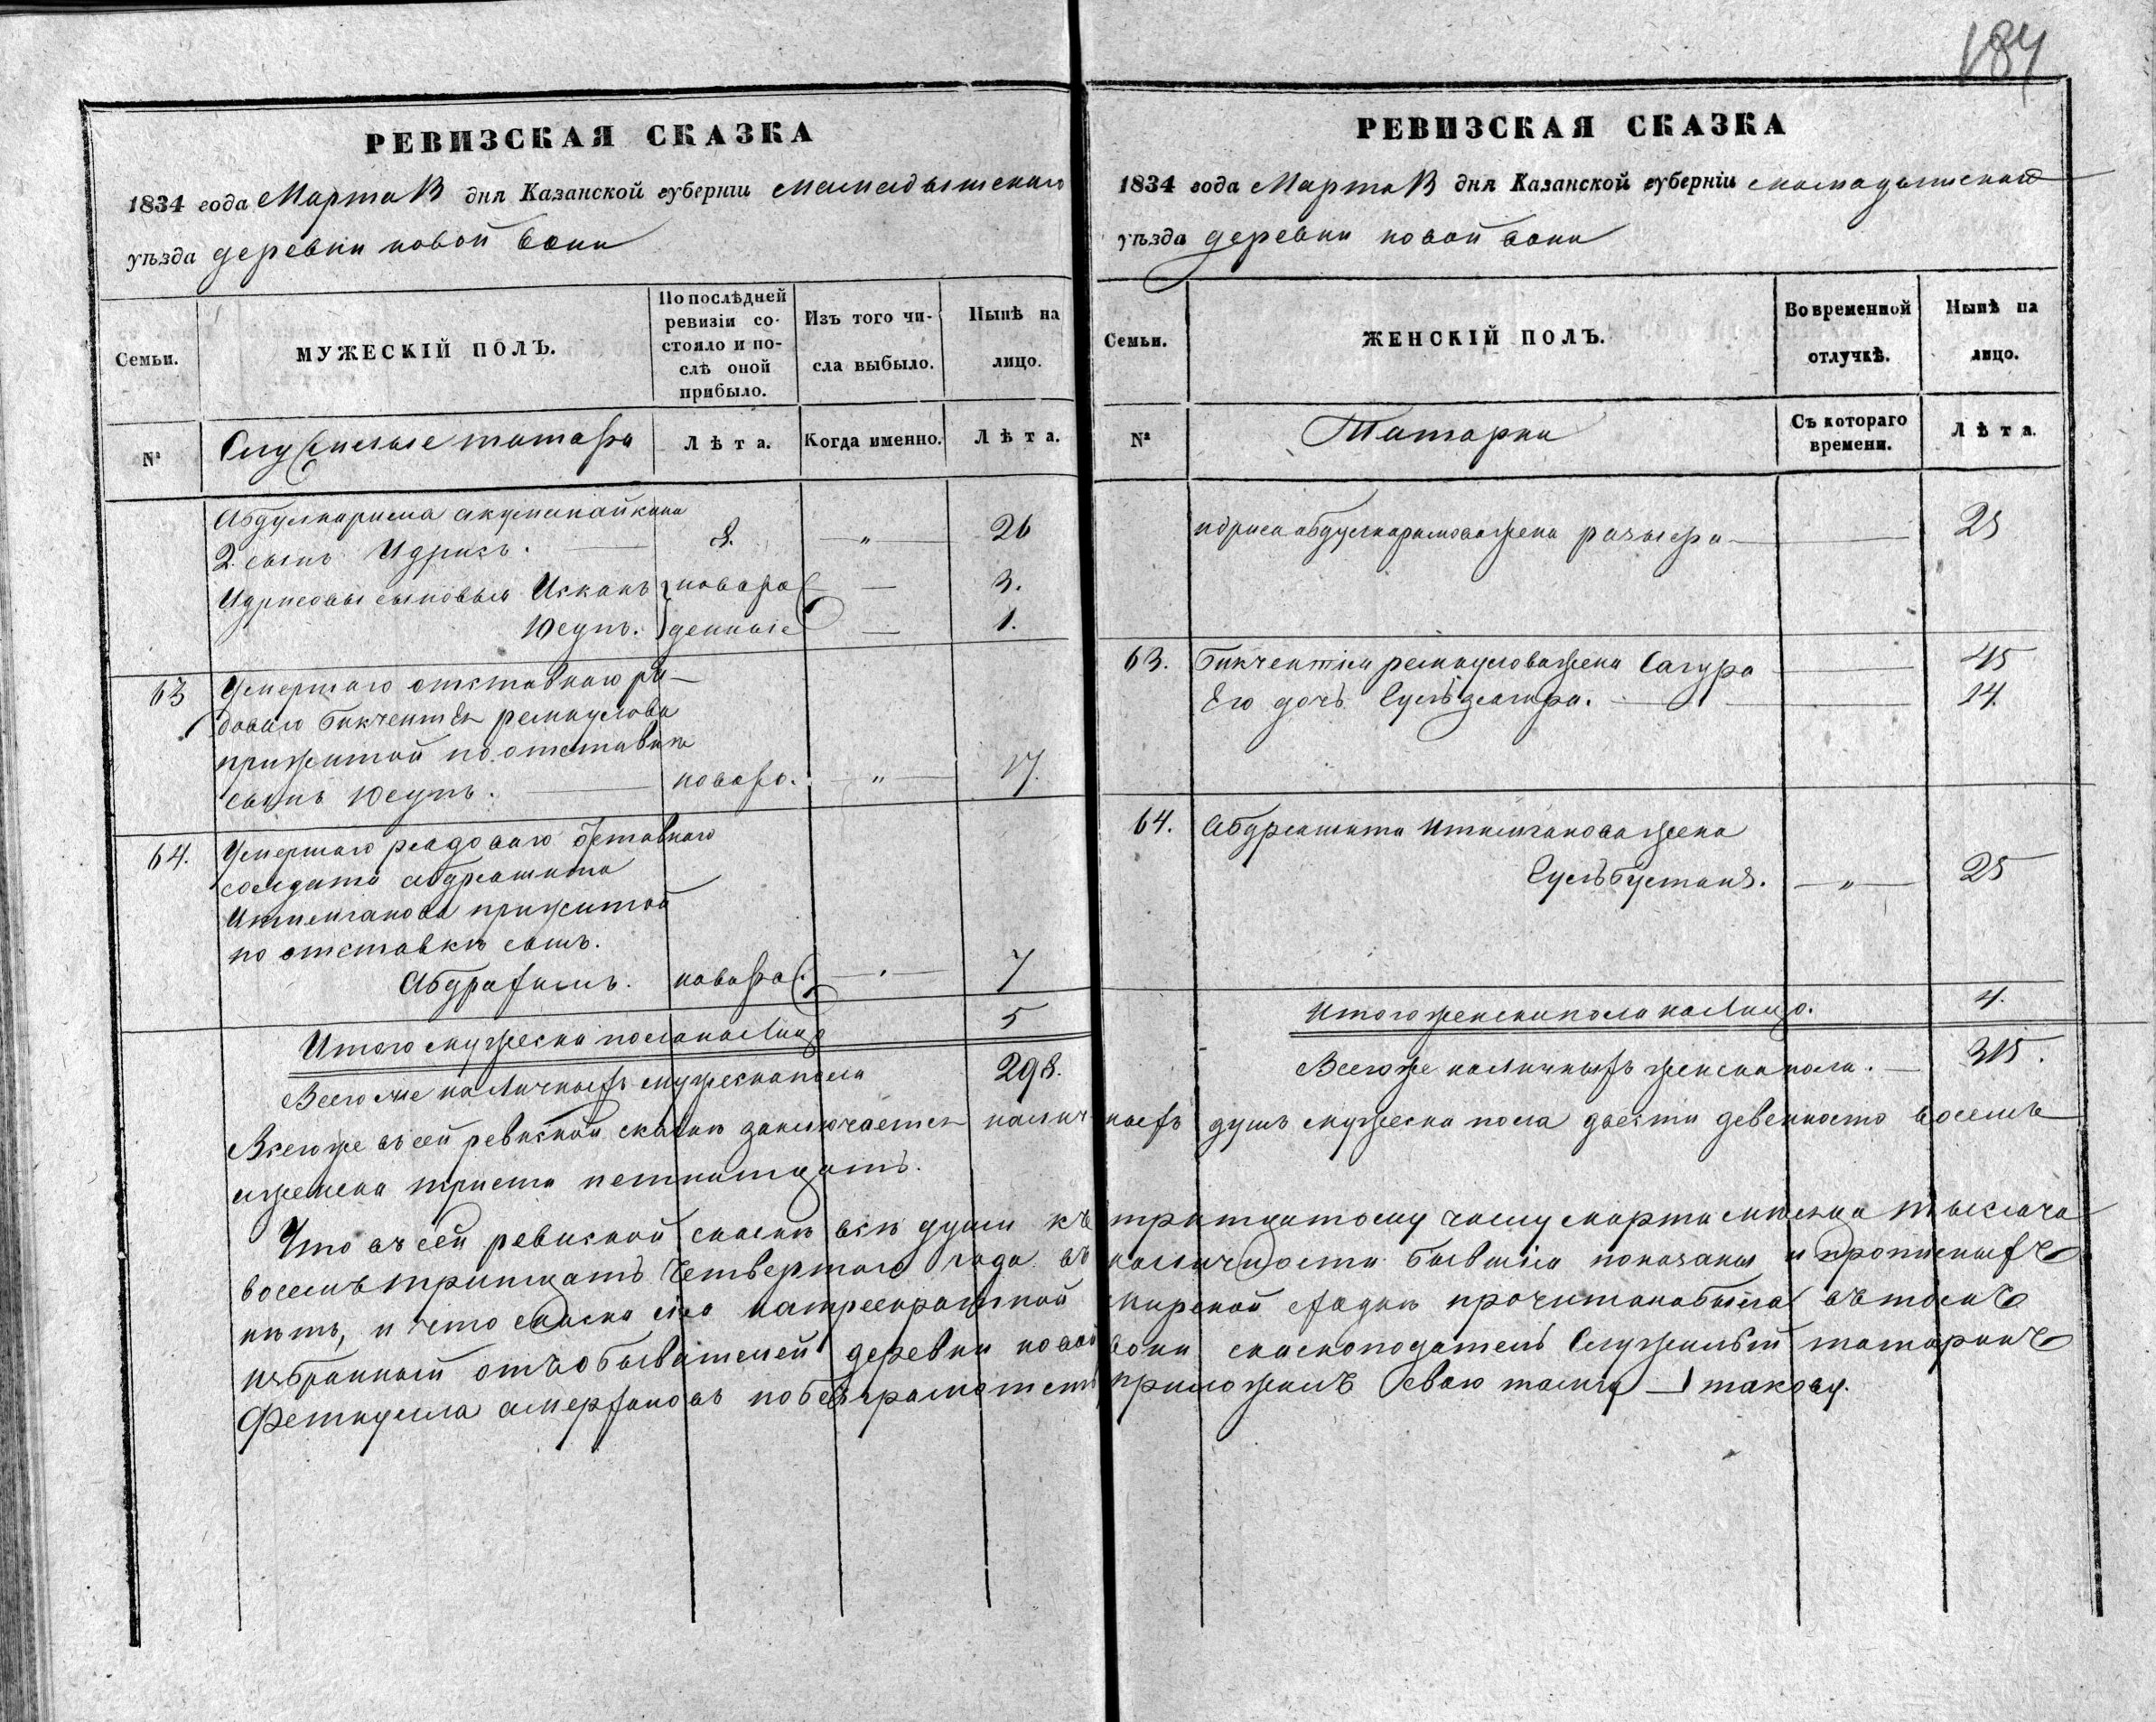 184
РЕВИЗСКАЯ СКАЗКА
1834 года Марта дня Казанской губерніи Мамадышскаго
уѣзда деревни новой вони
Семьи.
МУЖЕСКІЙ ПОЛЪ.
По послѣдней
ревизіи со-
стояло и по-
слѣ оной
прибыло.
Изъ того чи-
сла выбыло.
Нынѣ на
лицо.
№
Служилые татара
Лѣта.
Когда именно.
Лѣта.
Абдулкарима
2. сынъ Идрисъ. 8. „ 26
Идрисовы сыновья новоро 3.
Юсупъ. денные 1.
63 Умершаго отставнаго ря-
доваго ремкулова
прижитой по отставкѣ
сынъ Юсупъ. новоро. „ 17.
64. Умершаго рядоваго
солдата абдрашита
Итимганова прижитой
по отставкѣ сынъ.
новоро. 7
Итого мужеска пола на лицо 5
Всего же наличныхъ мужеска пола 298.
РЕВИЗСКАЯ СКАЗКА
1834 года Марта дня Казанской губерніи мамадышскаго
уѣзда деревни новой вони
Семьи.
ЖЕНСКІЙ ПОЛЪ.
Во временной
отлучкѣ.
Нынѣ на
лицо.
№
Татарки
Съ котораго
времени.
Лѣта.
идриса абдулкаримова жена 25
63. ремкулова жена Сагура 45
Его дочь 14.
64. Абдрашита Итимганова жена
Гульбустанъ. „ 25
Итого женска пола на лицо. 4.
Всего же наличныхъ женска пола. 315.
Всего же въ сей ревиской скаскѣ заключается наличныхъ душъ мужеска пола двести девеносто восемь
и женска триста петнатцать.
Что въ сей ревиской скаскѣ всѣ души къ тритцатому числу марта месяца тысяча
восемь тритцать четвертаго года въ наличности бывшія показаны и прописныхъ
нѣтъ, и что скаска сія на мирской прочитана была въ томъ
избранный отъ обывателей деревни новой вони скаскоподатель Служилый татаринъ
Феткулла по безграмотству приложилъ свою тамгу такову.